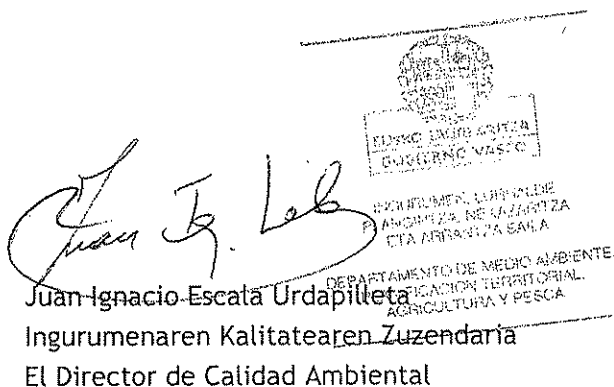 EUSKO JAURLARITZA
GOBIERNO VASCO
INGURUMEN, LURRALDE
PLANGINTZA, NEKAZARITZA
ETA ARRANTZA SAILA
DEPARTAMENTO DE MEDIO AMBIENTE,
PLANIFICACIÓN TERRITORIAL,
AGRICULTURA Y PESCA
Juan Ignacio Escala Urdapilleta
Ingurumenaren Kalitatearen Zuzendaria
El Director de Calidad Ambiental